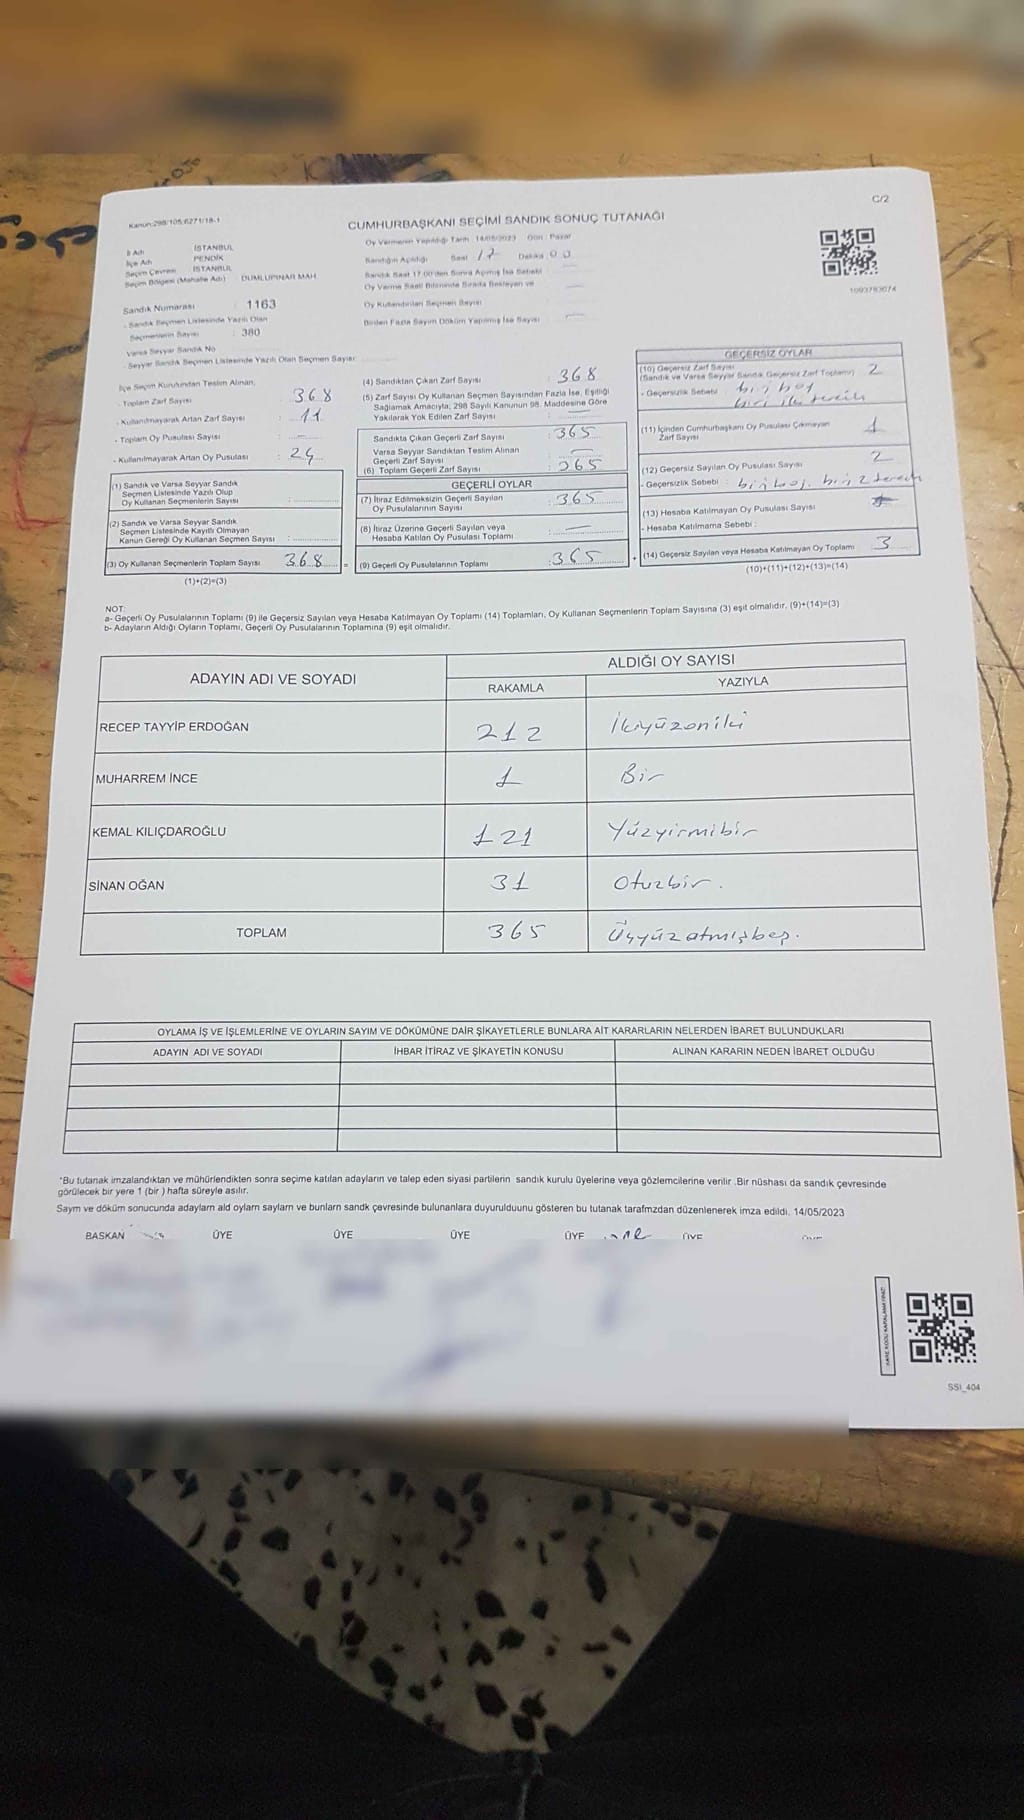 C/2
Kanun:298/105,6271/18-1
CUMHURBAŞKANI SEÇİMİ SANDIK SONUÇ TUTANAĞI
İl Adı İSTANBUL
İlçe Adı PENDİK
Seçim Çevresi İSTANBUL
Seçim Bölgesi (Mahalle Adı) DUMLUPINAR MAH.
Sandık Numarası : 1163
- Sandık Seçmen Listesinde Yazılı Olan
Seçmenlerin Sayısı : 380
Varsa Seyyar Sandık No
- Seyyar Sandık Seçmen Listesinde Yazılı Olan Seçmen Sayısı:
Oy Vermenin Yapıldığı Tarih : 14/05/2023 Gün : Pazar
Sandığın Açıldığı Saat 17 Dakika 00
Sandık Saat 17.00'den Sonra Açılmış İse Sebebi
Oy Verme Saati Bitiminde Sırada Bekleyen ve
Oy Kullandırılan Seçmen Sayısı
Birden Fazla Sayım Döküm Yapılmış İse Sayısı
1093783074
İlçe Seçim Kurulundan Teslim Alınan;
- Toplam Zarf Sayısı : 368
- Kullanılmayarak Artan Zarf Sayısı : 11
- Toplam Oy Pusulası Sayısı :
- Kullanılmayarak Artan Oy Pusulası : 24
(1) Sandık ve Varsa Seyyar Sandık
Seçmen Listesinde Yazılı Olup
Oy Kullanan Seçmenlerin Sayısı :
(2) Sandık ve Varsa Seyyar Sandık
Seçmen Listesinde Kayıtlı Olmayan
Kanun Gereği Oy Kullanan Seçmen Sayısı :
(3) Oy Kullanan Seçmenlerin Toplam Sayısı 368 =
(1)+(2)=(3)
(4) Sandıktan Çıkan Zarf Sayısı : 368
(5) Zarf Sayısı Oy Kullanan Seçmen Sayısından Fazla İse, Eşitliği
Sağlamak Amacıyla; 298 Sayılı Kanunun 98. Maddesine Göre
Yakılarak Yok Edilen Zarf Sayısı :
Sandıkta Çıkan Geçerli Zarf Sayısı : 365
Varsa Seyyar Sandıktan Teslim Alınan
Geçerli Zarf Sayısı :
(6) Toplam Geçerli Zarf Sayısı : 365
GEÇERLİ OYLAR
(7) İtiraz Edilmeksizin Geçerli Sayılan
Oy Pusulalarının Sayısı : 365
(8) İtiraz Üzerine Geçerli Sayılan veya
Hesaba Katılan Oy Pusulası Toplamı :
(9) Geçerli Oy Pusulalarının Toplamı : 365 +
GEÇERSİZ OYLAR
(10) Geçersiz Zarf Sayısı
(Sandık ve Varsa Seyyar Sandık Geçersiz Zarf Toplamı) 2
- Geçersizlik Sebebi : biri boş
biri iki tercih
(11) İçinden Cumhurbaşkanı Oy Pusulası Çıkmayan
Zarf Sayısı 1
(12) Geçersiz Sayılan Oy Pusulası Sayısı 2
- Geçersizlik Sebebi : biri boş. biri 2 tercih
(13) Hesaba Katılmayan Oy Pusulası Sayısı
- Hesaba Katılmama Sebebi :
(14) Geçersiz Sayılan veya Hesaba Katılmayan Oy Toplamı 3
(10)+(11)+(12)+(13)=(14)
NOT:
a- Geçerli Oy Pusulalarının Toplamı (9) ile Geçersiz Sayılan veya Hesaba Katılmayan Oy Toplamı (14) Toplamları, Oy Kullanan Seçmenlerin Toplam Sayısına (3) eşit olmalıdır, (9)+(14)=(3)
b- Adayların Aldığı Oyların Toplamı, Geçerli Oy Pusulalarının Toplamına (9) eşit olmalıdır.
ADAYIN ADI VE SOYADI
ALDIĞI OY SAYISI
RAKAMLA YAZIYLA
RECEP TAYYİP ERDOĞAN 212 İkiyüzoniki
MUHARREM İNCE 1 Bir
KEMAL KILIÇDAROĞLU 121 Yüzyirmibir
SİNAN OĞAN 31 Otuzbir.
TOPLAM 365 Üçyüzatmışbeş.
OYLAMA İŞ VE İŞLEMLERİNE VE OYLARIN SAYIM VE DÖKÜMÜNE DAİR ŞİKAYETLERLE BUNLARA AİT KARARLARIN NELERDEN İBARET BULUNDUKLARI
ADAYIN ADI VE SOYADI İHBAR İTİRAZ VE ŞİKAYETİN KONUSU ALINAN KARARIN NEDEN İBARET OLDUĞU
*Bu tutanak imzalandıktan ve mühürlendikten sonra seçime katılan adayların ve talep eden siyasi partilerin sandık kurulu üyelerine veya gözlemcilerine verilir .Bir nüshası da sandık çevresinde
görülecek bir yere 1 (bir ) hafta süreyle asılır.
Saym ve döküm sonucunda adaylarn ald oylarn saylarn ve bunlarn sandk çevresinde bulunanlara duyurulduunu gösteren bu tutanak tarafmzdan düzenlenerek imza edildi. 14/05/2023
BAŞKAN ÜYE ÜYE ÜYE ÜYE ÜYE
SSI_404